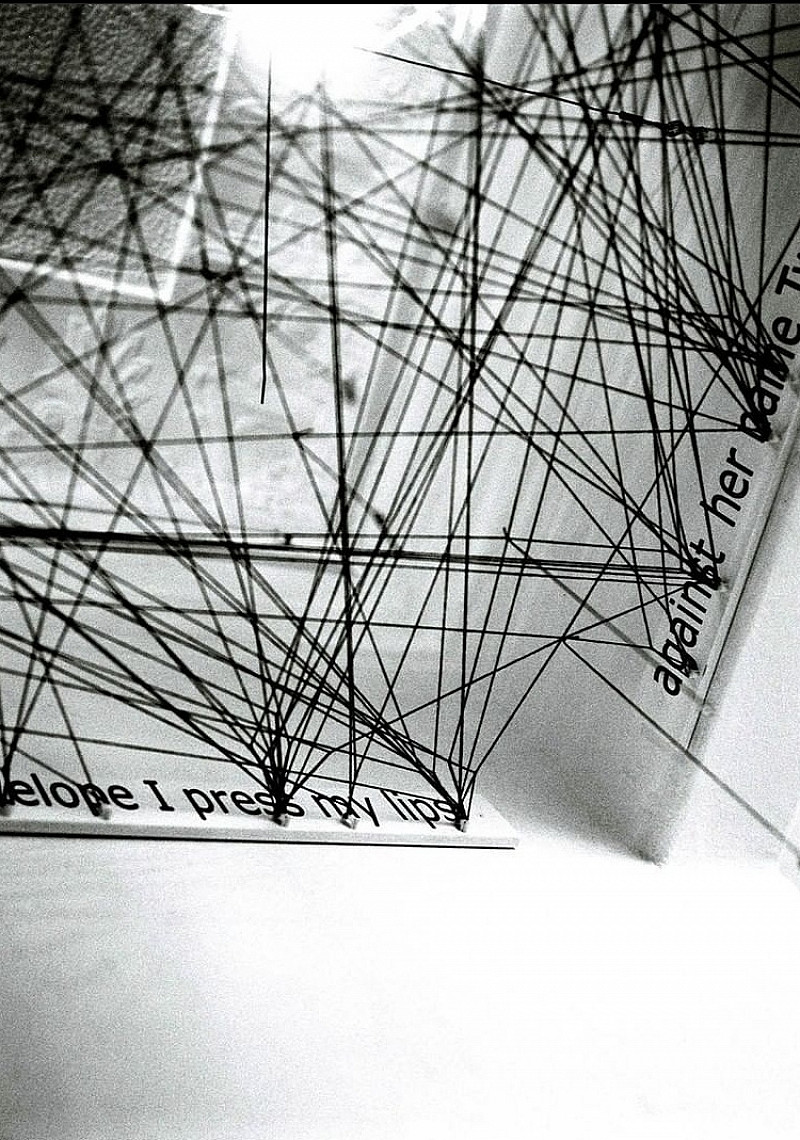 elope I press my lips
against her name Tw